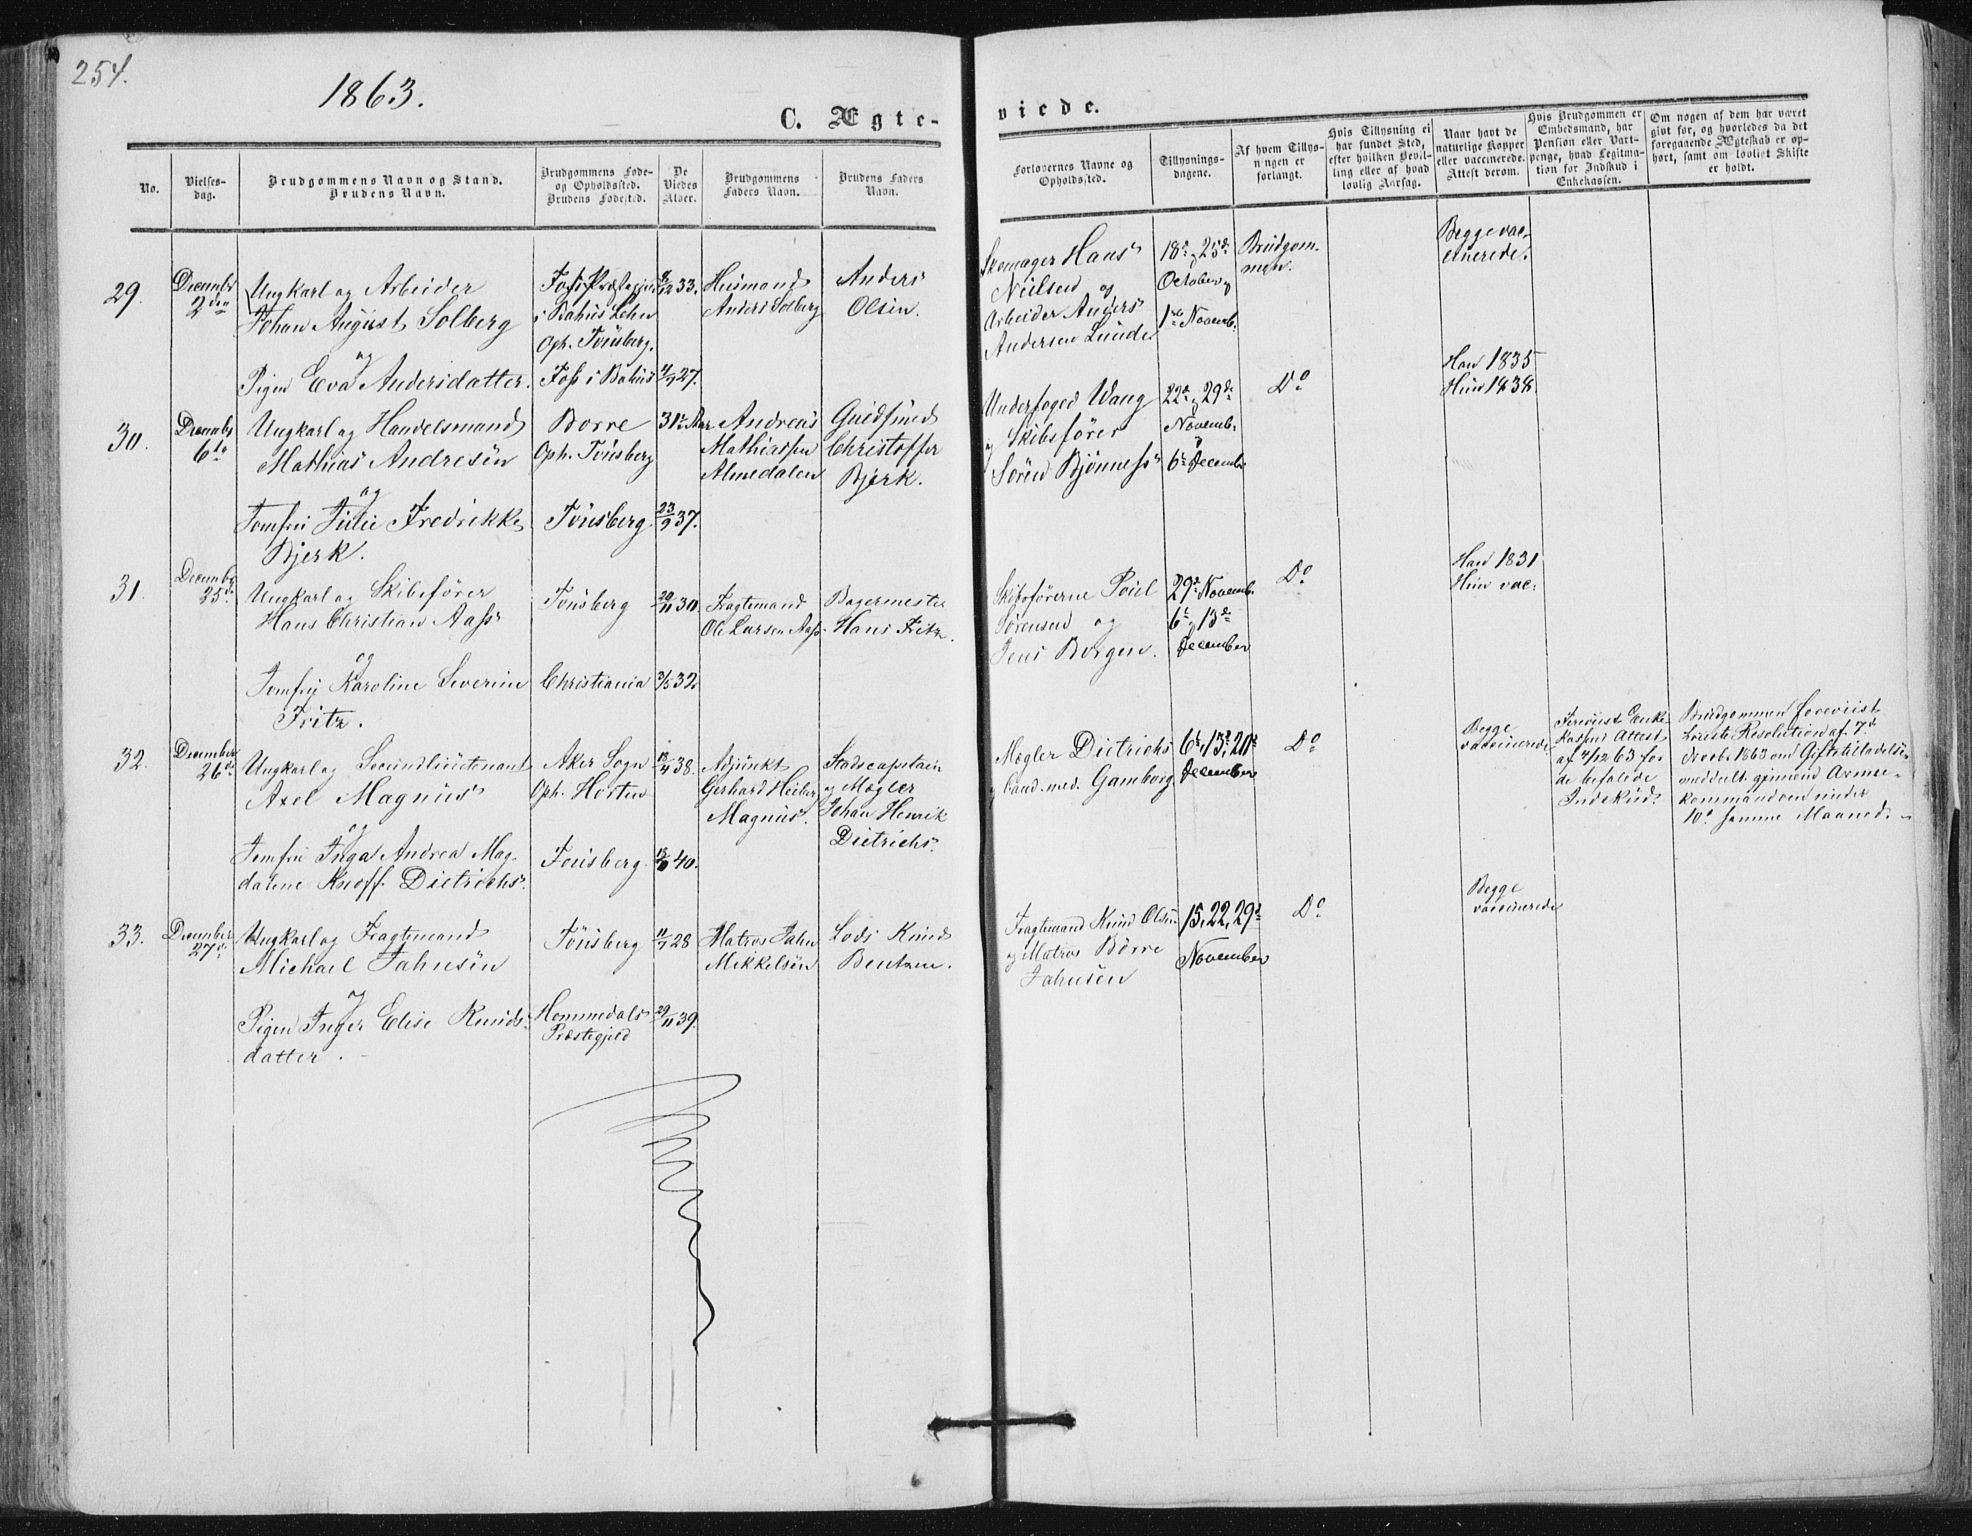 254.
1863.
C. Ægte-
No.
Vielses-
dag.
Brudgommens Navn og Stand.
Brudens Navn.
Brudgommens Føde-
og Opholdssted.
Brudens Fødested.
De
Viedes
Alder.
Brudgommens
Faders Navn.
Brudens Faders
Navn.
29.
Decembr
2den
Ungkarl og Arbeider
Johan August Solberg
og
Pigen Eva Andersdatter.
Foss Præstegjeld
i Bahus Lehn
Oph. Tønsberg.
Foss i Bahus
33.
27.
Huusmand
Anders Solberg
Anders
Olsen.
30.
Decembr
6te
Ungkarl og Handelsmand
Mathias Andresen
og
Jomfru Julie Fredrikke
Bjerk.
Borre
Oph. Tønsberg
Tønsberg
31 Aar
23/9 37.
Andreas
Mathiassen
Almedalen
Christoffer
Bjerk.
31.
Decembr
25de
Ungkarl og Skibsfører
Hans Christian Aass
og
Jomfru Karoline Severine
Fritz.
Tønsberg
Christiania
20/11 30
3/5 32
Fragtemand
Ole Larsen Aass.
Bagermester
Hans Fritz.
32.
December
26de
Ungkarl og Secondlieutenant
Axel Magnus
og
Jomfru Inga Andrea Mag-
dalene Knoff Dietrichs.
Aker Sogn
Oph. Horten
Tønsberg
38.
40.
Adjunkt
Gerhard Heiberg
Magnus.
Stadscaptain
og Mægler
Johan Henrik
Dietrichs.
33.
December
27de
Ungkarl og Fragtemand
Michael Jahnsen
og
Pigen Inger Elise Knuds-
datter.
Tønsberg
Hommedals
Præstegjeld
11/7 28
29/11 39.
Matros Jahn
Mikkelsen
Lods Knud
Bentzen.
viede.
Forlovernes Navne og
Opholdssted.
Tillysnings-
dagene.
Af hvem Tillys-
ningen er
forlangt.
Hvis Tillysning ei
har fundet Sted,
efter hvilken Bevil-
ling eller af hvad
lovlig Aarsag.
Naar havt de
naturlige Kopper
eller vaccinerede.
Attest derom.
Hvis Brudgommen er
Embedsmand, har
Pension eller Vart-
penge, hvad Legitima-
tion for Indskud i
Enkekassen.
Om nogen af dem har været
givt før, og hvorledes da det
foregaaende Ægteskab er op-
hørt, samt om lovligt Skifte
er holdt.
Skomager Hans
Neilsen og
Arbeider Anders
Andersen Lunde
18de, 25de
October og
1ste Novemb.
Brudgom-
men.
Begge vac-
cinerede.
Underfoged Wang
og Skibsfører
Søren Bjønness
22de, 29de
Novemb.
og
6te Decembr
Do
Han 1835
Hun 1838
Skibsførerne Poul
Sørensen og
Jens Borgen.
29de Novemb.
6te, 13de
December
Do
Han 1831
Hun vac:
Mægler Dietrichs
og Cand. med. Gamborg
6te, 13de, 20de
December
Do
Begge
vaccinerede
Foreviist Enke-
Kasses Attest
af 4/12 63 for
de befalede
Indskud.
Brudgommen foreviist
Resolution af 7de
Novbr 1863 om Giftetilladelse
meddeelt gjennem Armee-
kommandoen under
10de samme Maaned.
Fragtemand Knud Olsen
og Matros Børre
Jahnsen
15, 22, 29de
November
Do
Begge
vaccinerede